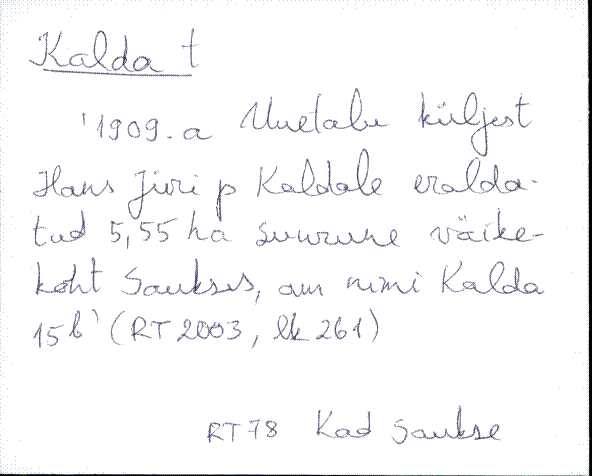 Kalda t
'1909. a Uuetalu küljest
Hans Jüri p Kaldale eralda-
tud 5,55 ha suurune väike-
koht Saukses, am nimi Kalda
15b' (RT 2003, lk 261)
RT 78 Kad Saukse